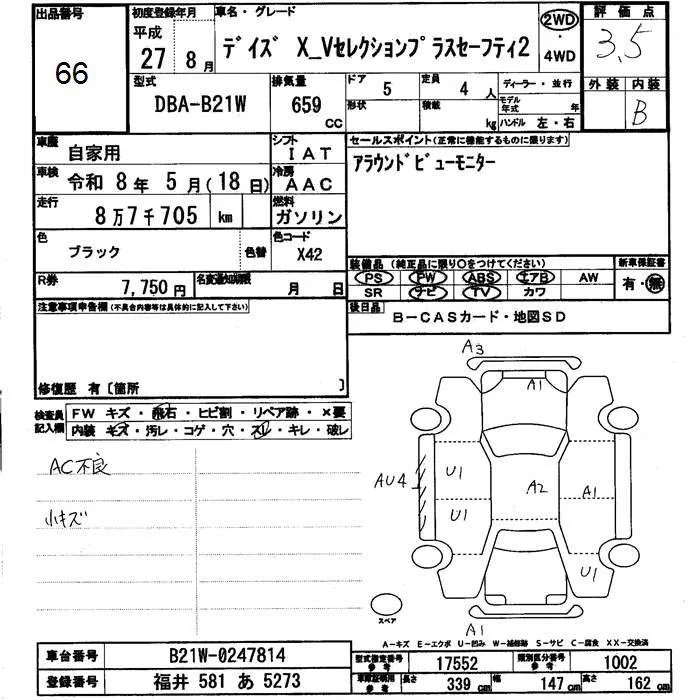 出品番号
66
初度登録年月
平成
27 8月
車名・グレード
デイズ X_Vセレクションプラスセーフティ2
2WD
・
4WD
評価点
3.5
型式
DBA-B21W
排気量
659
CC
ドア
5
定員
4 人
形状
積載
kg
ディーラー・並行
モデル年式 年
ハンドル 左・右
外装 内装
B
車歴
自家用
シフト
IAT
車検
令和 8年 5月(18日)
冷房
AAC
走行
8万7千705 km
燃料
ガソリン
色
ブラック
色替
色コード
X42
R券
7,750円
名変通知期限
月 日
セールスポイント(正常に機能するものに限ります)
アラウンドビューモニター
装備品 (純正品に限り〇をつけてください)
PS PW ABS エアB AW
SR ナビ TV カワ
新車保証書
有・無
後日品
B-CASカード・地図SD
注意事項申告欄(不具合内容等は具体的に記入して下さい)
修復歴 有〔箇所 〕
検査員記入欄
FW キズ・飛石・ヒビ割・リペア跡・×要
内装 キズ・汚レ・コゲ・穴・スレ・キレ・破レ
AC不良
小キズ
A3
A1
U1
AU4
A2
A1
U1
U1
A1
スペア
A-キズ E-エクボ U-凹み W-補修跡 S-サビ C-腐食 XX-交換済
車台番号
B21W-0247814
登録番号
福井 581 あ 5273
型式指定番号 参考
17552
類別区分番号 参考
1002
車庫証明用 参考
長さ 339 cm
幅 147 cm
高さ 162 cm